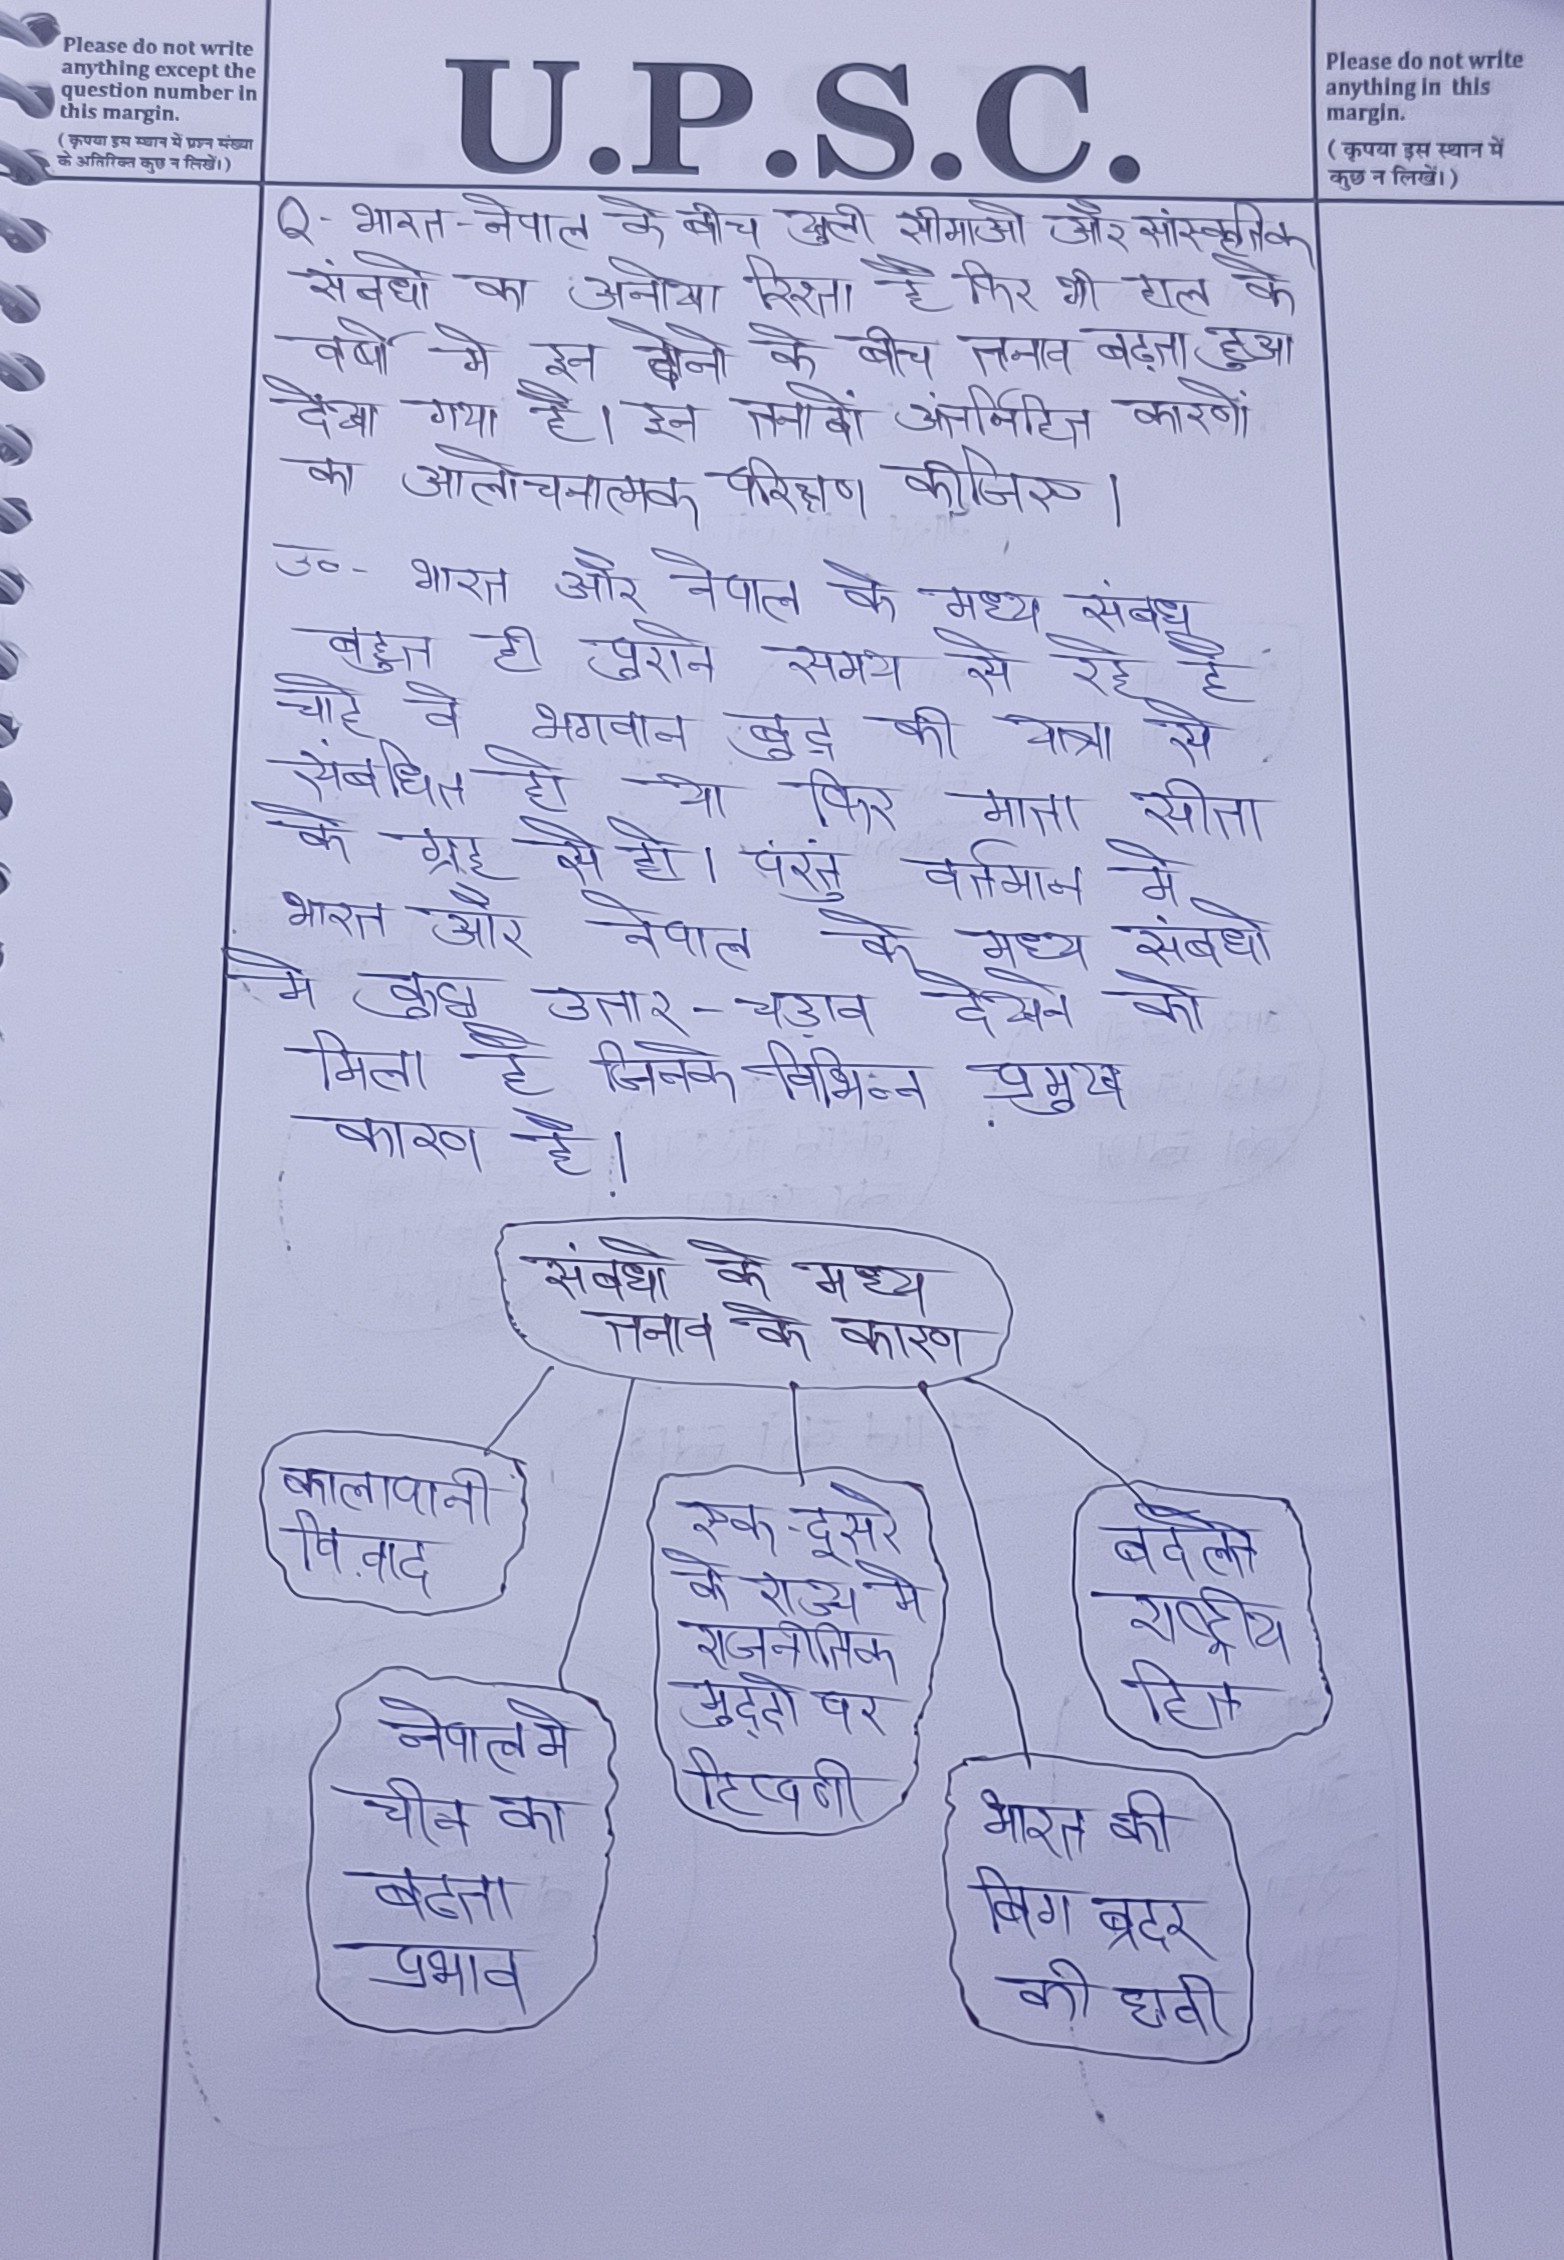 Please do not write
anything except the
question number in
this margin.
( कृपया इस स्थान में प्रश्न संख्या
के अतिरिक्त कुछ न लिखें।)
U.P.S.C.
Please do not write
anything in this
margin.
( कृपया इस स्थान में
कुछ न लिखें।)
Q- भारत-नेपाल के बीच खुली सीमाओ और सांस्कृतिक
संबधो का अनोखा रिश्ता है फिर भी हाल के
वर्षो मे इन दोनो के बीच तनाव बढ़ता हुआ
देखा गया है। इन तनावों अंतर्निहित कारणों
का आलोचनात्मक परिक्षण कीजिए।
उ०- भारत और नेपाल के मध्य संबध
बहुत ही पुराने समय से रहे है
चाहे वे भगवान बुद्ध की यात्रा से
संबधित हो या फिर माता सीता
के ग्रह से हो। परंतु वर्तमान मे
भारत और नेपाल के मध्य संबधो
मे कुछ उतार-चड़ाव देखने को
मिला है जिनके विभिन्न प्रमुख
कारण है।
संबधो के मध्य
तनाव के कारण
कालापानी
विवाद
नेपाल मे
चीन का
बढता
प्रभाव
एक-दूसरे
के राज्य मे
राजनीतिक
मुद्दो पर
टिप्पणी
भारत की
बिग ब्रदर
की छवी
बदलते
राष्ट्रीय
हित